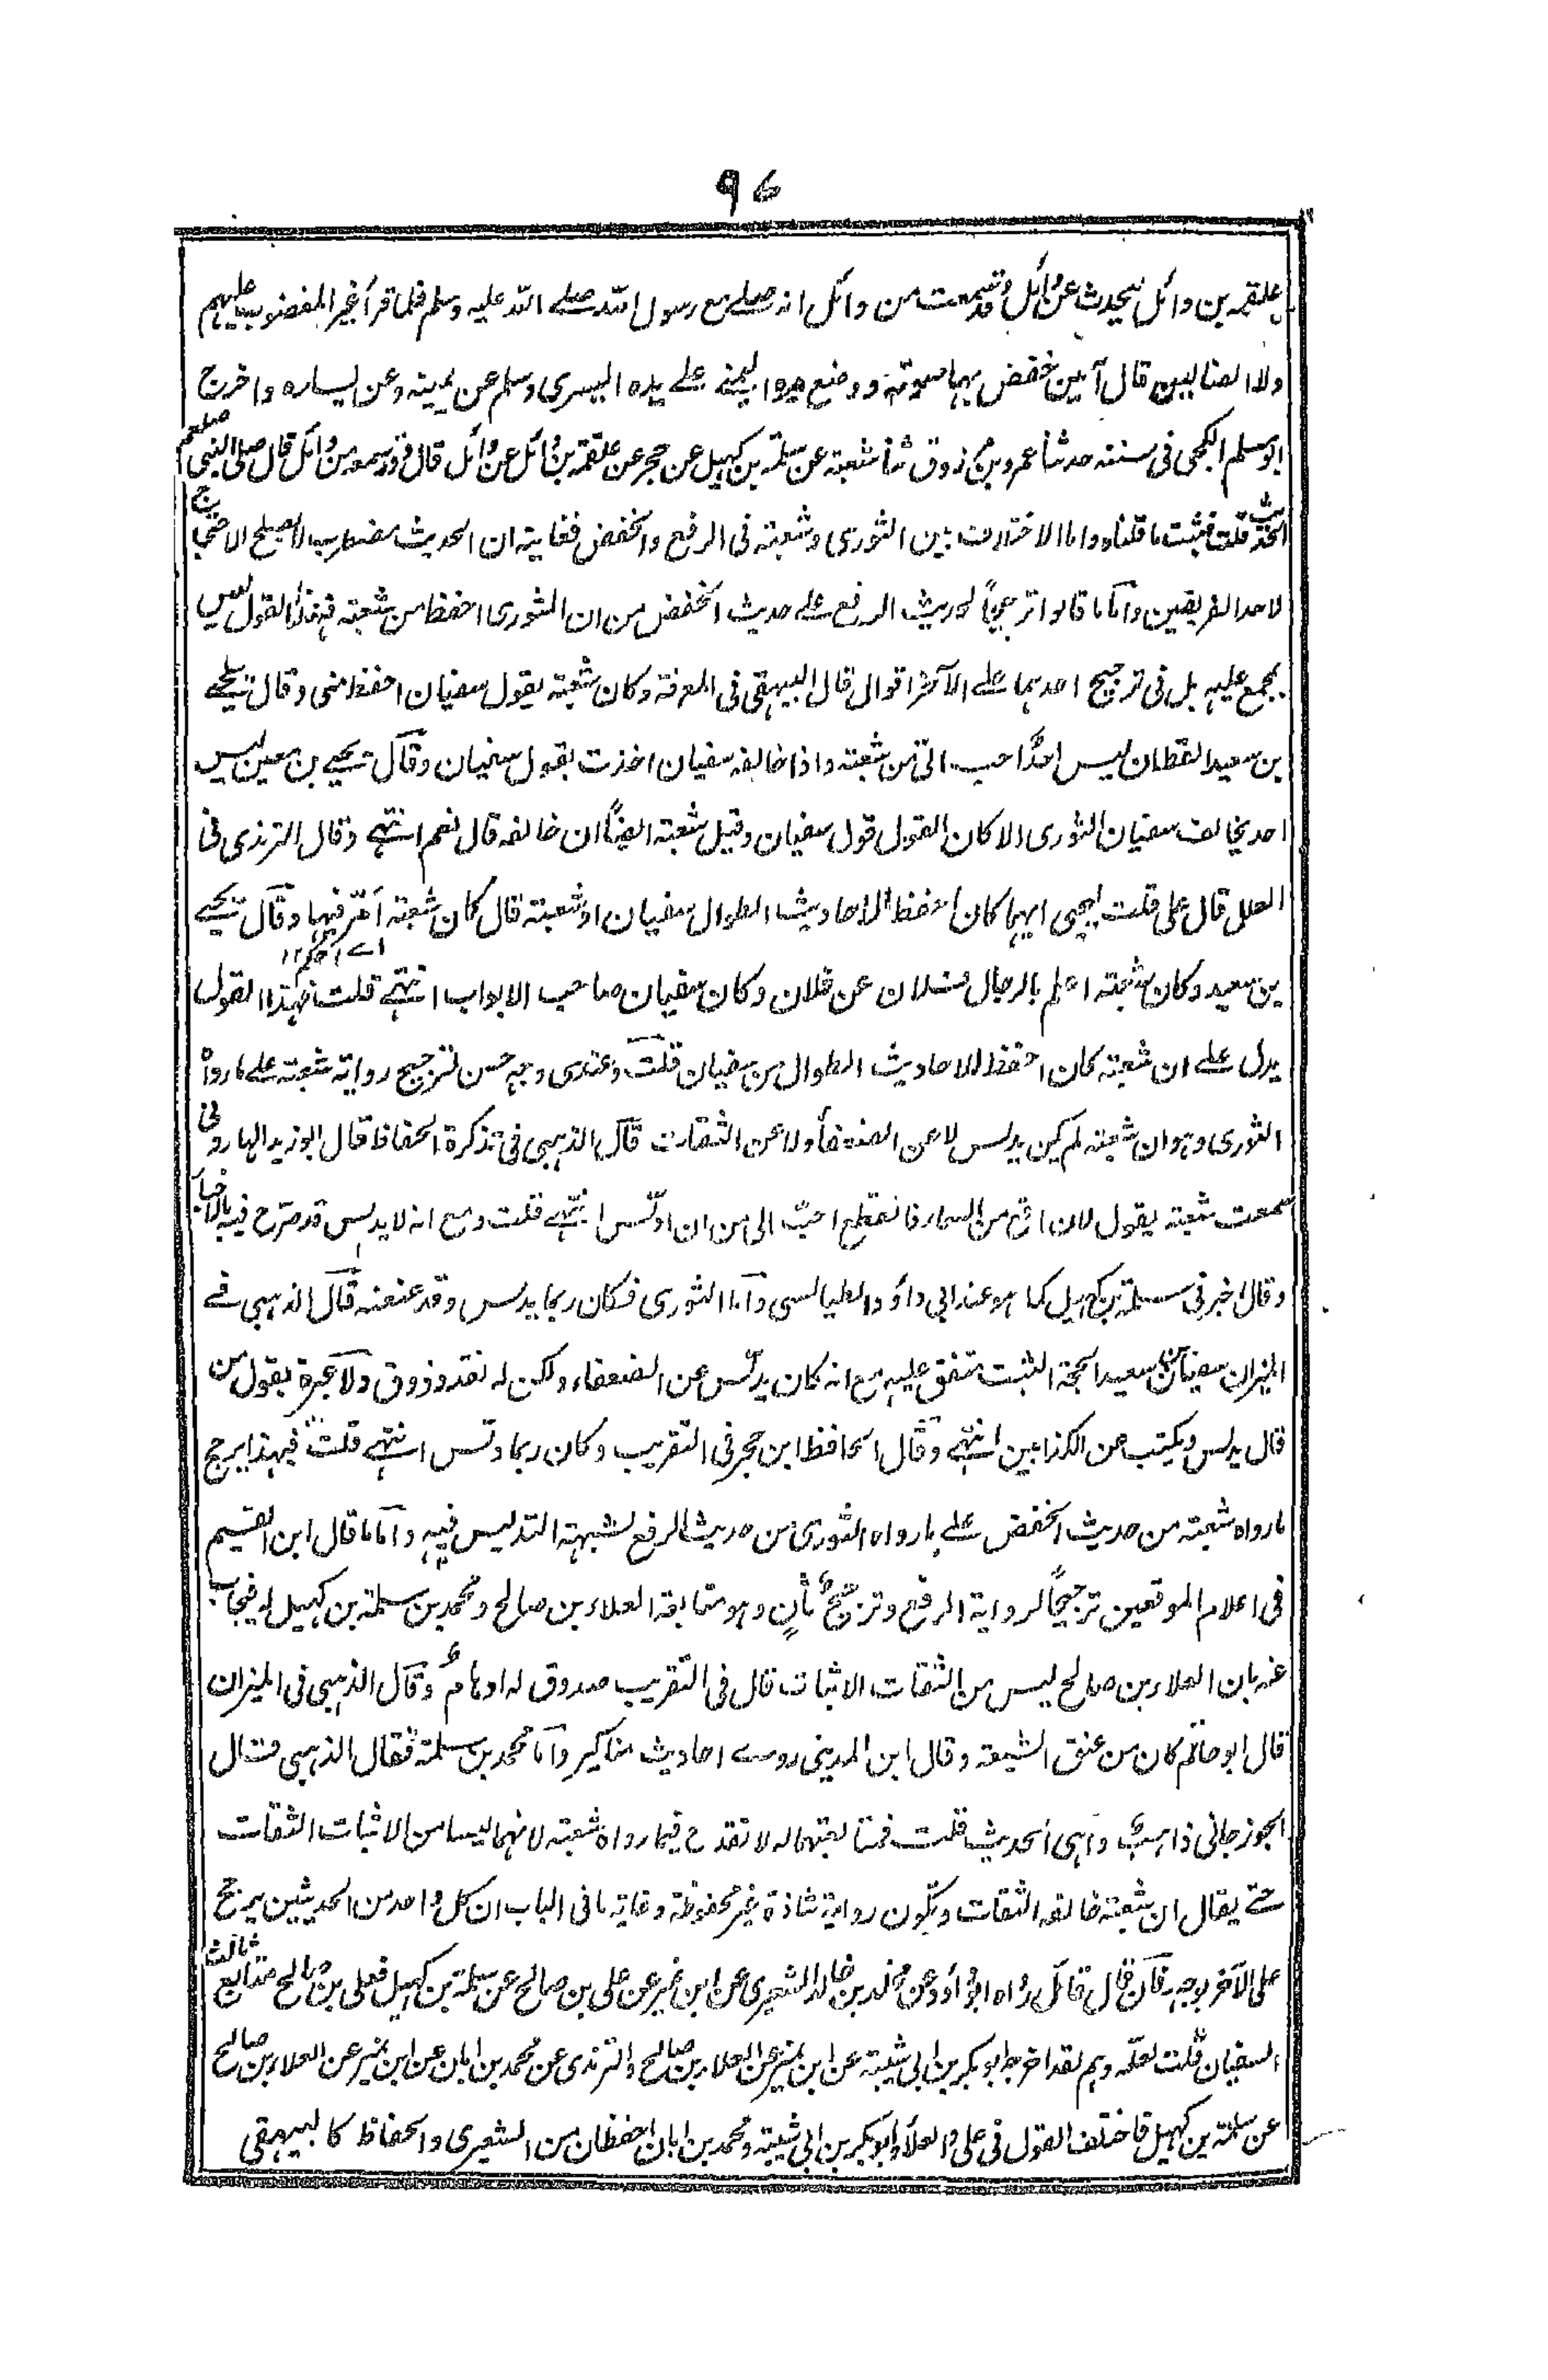 ۹۷
علقمه بن وائل یحدث عن وائل وقد سمعت من وائل انه صلے مع رسول اللہ صلے اللہ علیہ وسلم فلما قرأ غیر المغضوب علیہم
ولا الضالین قال آمین خفض بہا صوتہ و وضع یدہ الیمنے علے یدہ الیسری وسلم عن یمینہ وعن یسارہ واخرج
ابو مسلم الکجی فی سننہ حدثنا عمرو بن مرزوق ثنا شعبة عن سلمة بن کہیل عن حجر عن علقمة بن وائل عن وائل قال وقد سمعہ من وائل قال صلی النبی صلعم
الحدیث قلت فثبت ما قلناہ واما الاختلاف بین الثوری وشعبة فی الرفع والخفض فغایتہ ان الحدیث مضطرب لا یصلح الاحتجاج
لاحد الفریقین وأما ما قالوا ترجیحاً لحدیث الرفع علے حدیث الخفض من ان الثوری احفظ من شعبة فہذا القول لیس
بمجمع علیہ بل فی ترجیح احدہما علے الآخر اقوال قال البیہقی فی المعرفة وکان شعبة یقول سفیان احفظ منی وقال یحیے
بن سعید القطان لیس احدٌ احب الیّ من شعبة واذا خالفہ سفیان اخذت بقول سفیان وقال یحیے بن معین لیس
احد یخالف سفیان الثوری الا کان القول قول سفیان وقیل شعبة ایضاً ان خالفہ قال نعم انتہے وقال الترمذی فی
العلل قال علی قلت لیحیی ایہما کان احفظ للاحادیث الطوال سفیان او شعبة قال کان شعبة أمرّ فیہا وقال یحیے
اے احکم ۱۲
بن سعید وکان شعبة اعلم بالرجال فلان عن فلان وکان سفیان صاحب الابواب انتہے قلت فہذا القول
یدل علے ان شعبة کان احفظ للاحادیث الطوال من سفیان قلت وعندی وجہ حسن لترجیح روایة شعبة علے ما رواہ
الثوری وہو ان شعبة لم یکن یدلس لا عن الضعفاء ولا عن الثقات قال الذہبی فی تذکرة الحفاظ قال ابو زید الہاروی
سمعت شعبة یقول لان اقع من السماء فانقطع احبّ الی من ان ادلّس انتہے قلت ومع انہ لا یدلس قد صرّح فیہ بالاخبار
وقال اخبرنی سلمة بن کہیل کما ہو عند ابی داؤد الطیالسی وأما الثوری فکان ربما یدلس وقد عنعنہ قال الذہبی فے
المیزان سفیان بن سعید الحجة الثبت متفق علیہ مع انہ کان یدلّس عن الضعفاء ولکن لہ نقد وذوق ولا عبرة بقول من
قال یدلس ویکتب عن الکذابین انتہے وقال الحافظ ابن حجر فی التقریب وکان ربما دلس انتہے قلت فبہذا یرجح
ما رواہ شعبة من حدیث الخفض علے ما رواہ الثوری من حدیث الرفع لشبہة التدلیس فیہ وأما ما قال ابن القیم
فی اعلام الموقعین ترجیحاً لروایة الرفع وترجیحٌ ثانٍ وہو متابعة العلاء بن صالح ومحمد بن سلمة بن کہیل لہ فیجاب
عنہ بان العلاء بن صالح لیس من الثقات الاثبات قال فی التقریب صدوق لہ اوہامٌ وقال الذہبی فی المیزان
قال ابو حاتم کان من عنق الشیعة وقال ابن المدینی روے احادیث مناکیر وأما محمد بن سلمة فقال الذہبی قال
الجوزجانی ذاہبٌ واہی الحدیث قلت فمتابعتہما لہ لا تقدح فیما رواہ شعبة لانہما لیسا من الاثبات الثقات
حتے یقال ان شعبة خالف الثقات وتکون روایة شاذة غیر محفوظة وغایة ما فی الباب ان کل واحد من الحدیثین یرجح
علی الآخر بوجہ فان قال قائل رواہ ابو داؤد عن مخلد بن خالد الشعیری عن ابن نمیر عن علی بن صالح عن سلمة بن کہیل فعلی بن صالح متابع ثالث
السفیان قلت لعلہ وہم لقد اخرجہ ابو بکر بن ابی شیبة عن ابن نمیر عن العلاء بن صالح والترمذی عن محمد بن ابان عن ابن نمیر عن العلاء بن صالح
عن سلمة بن کہیل فاختلف القول فی علی والعلاء وابو بکر بن ابی شیبة ومحمد بن ابان احفظان من الشعیری والحفاظ کالبیہقی